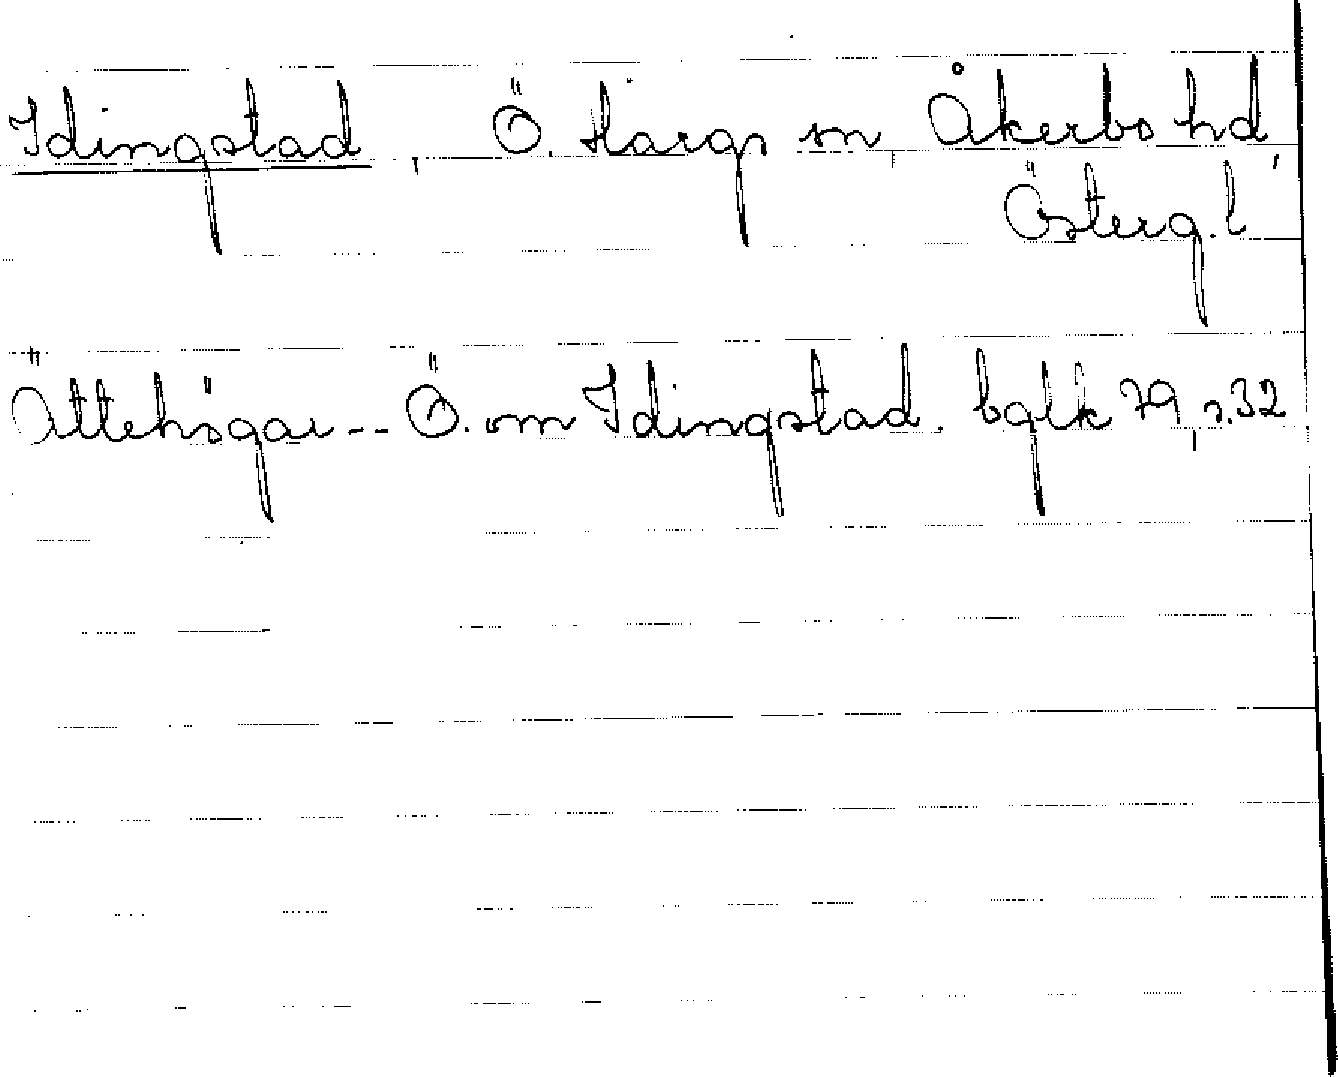 Idingstad, Ö. Hargs sn, Åkerbo hd,
Österg. l
Ättehögar -- Ö. om Idingstad. bglk 79, s. 32